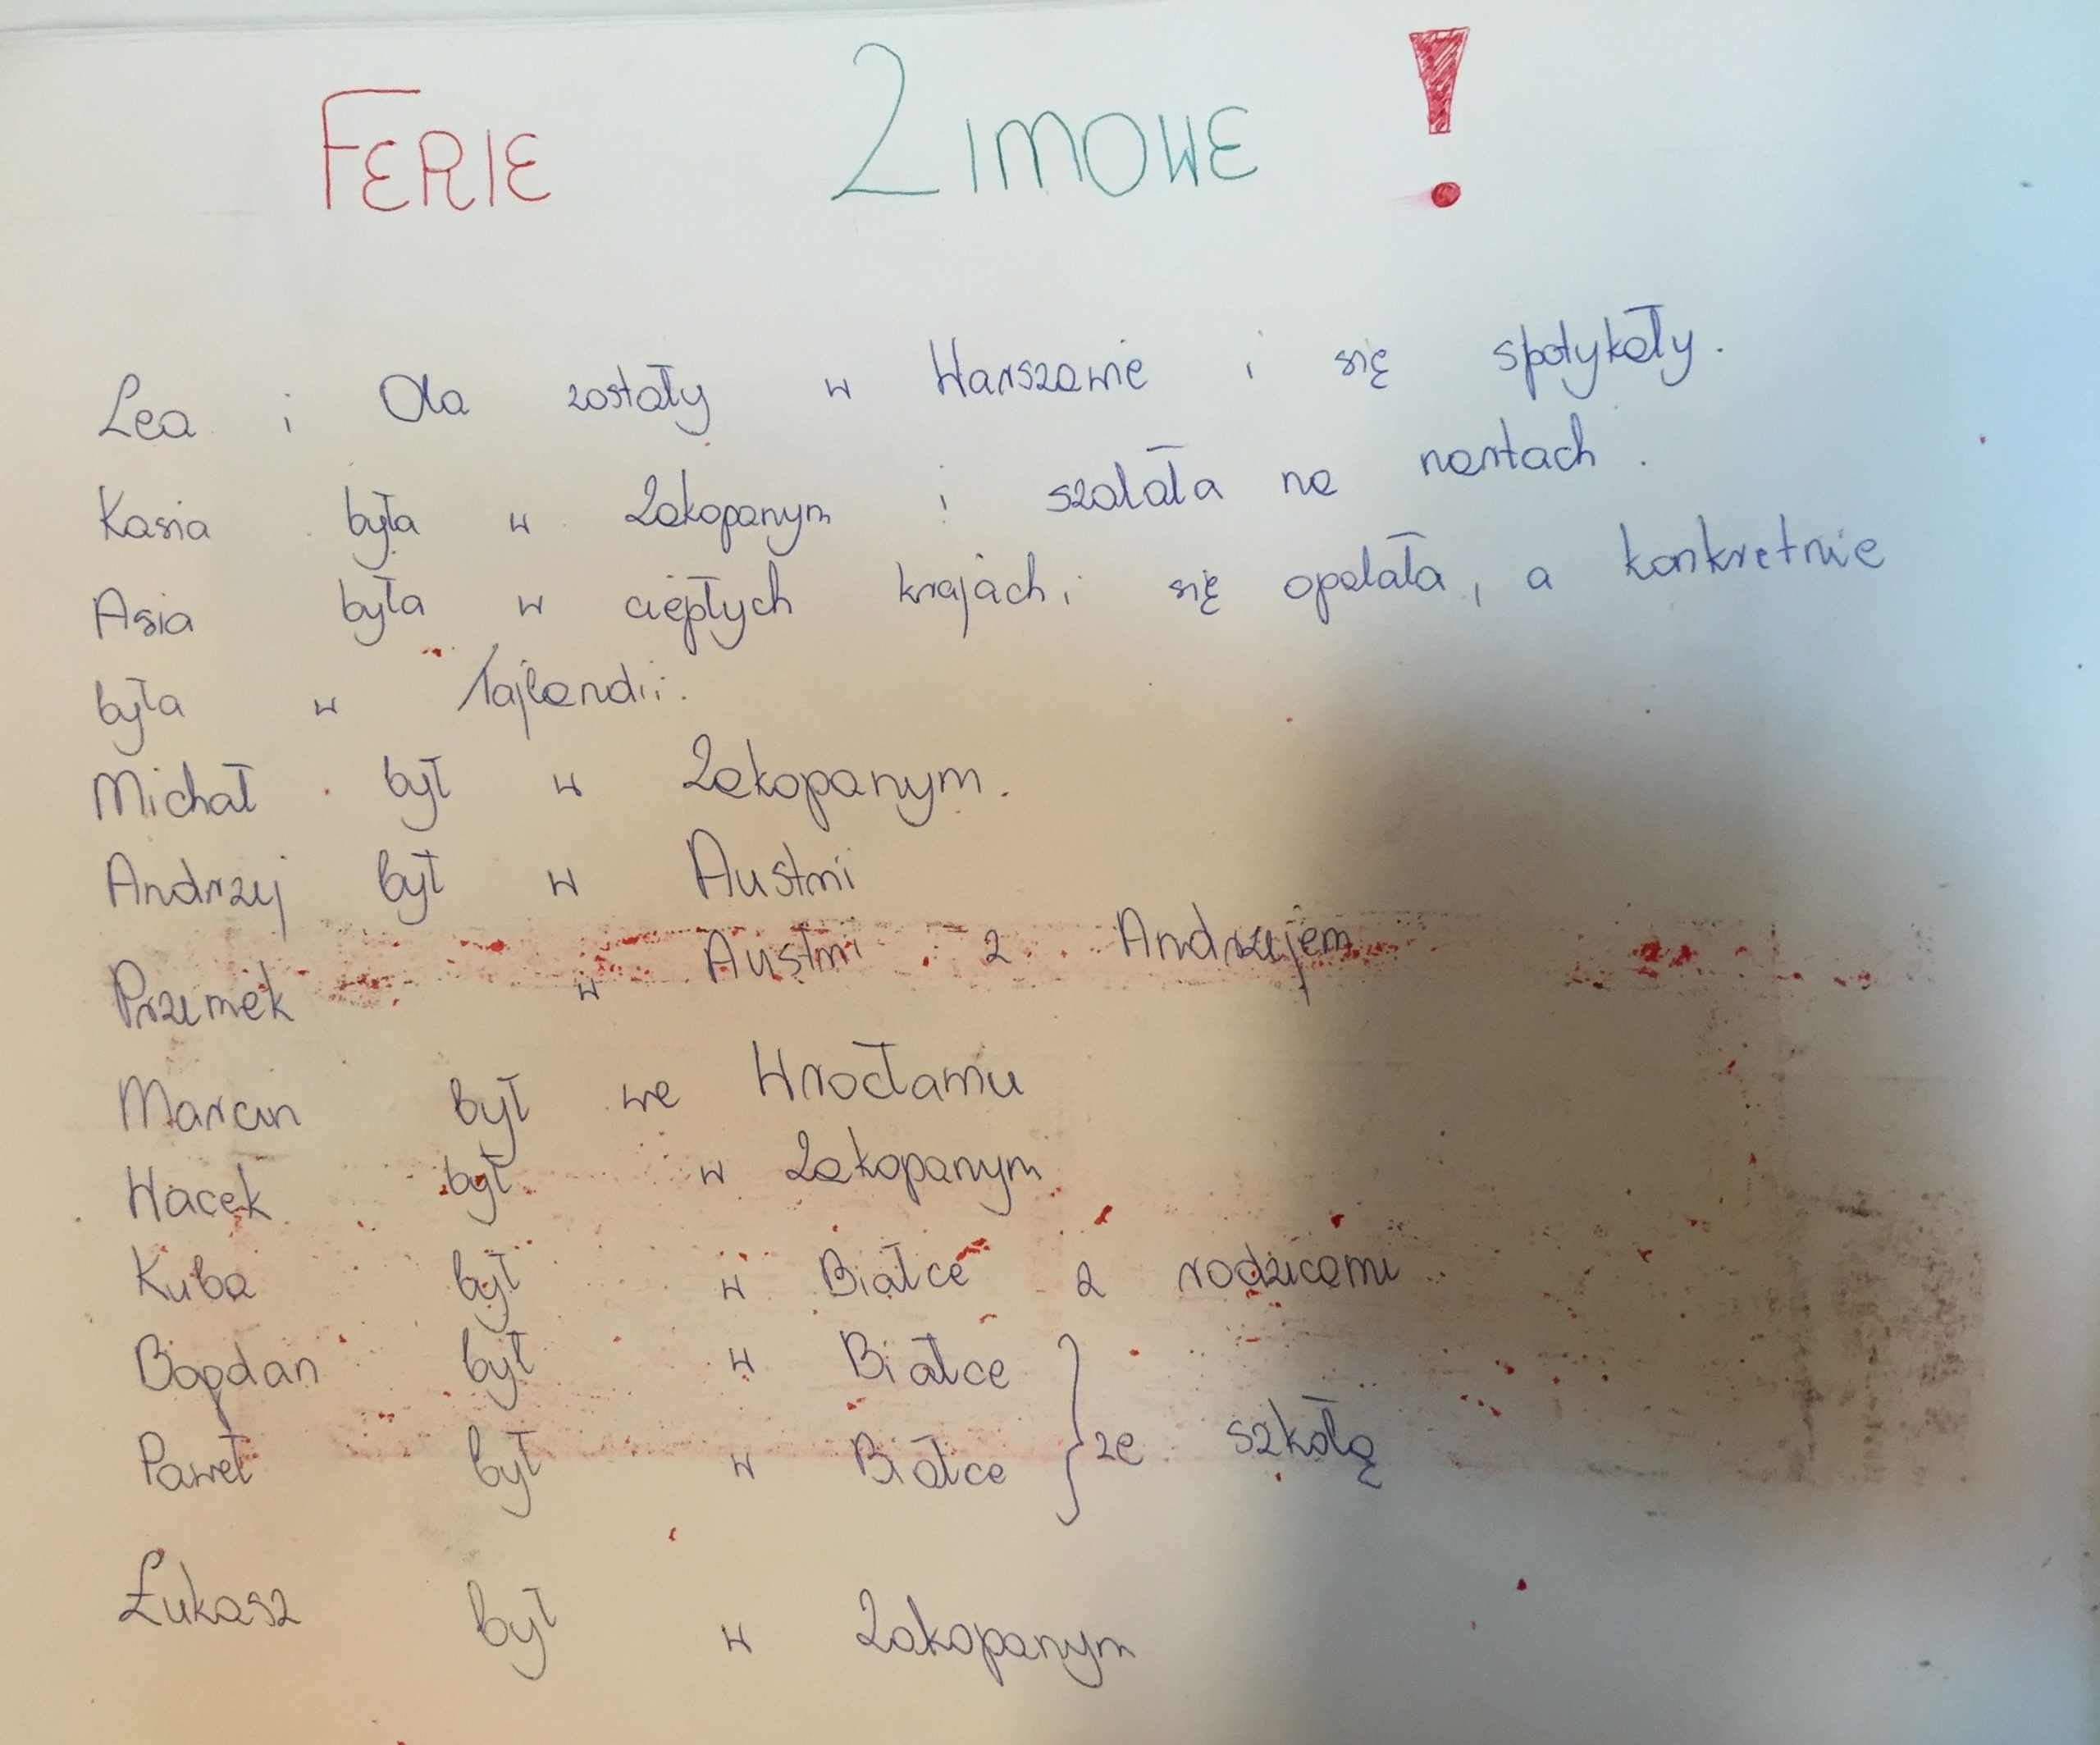 FERIE ZIMOWE !
Lea i Ola zostały w Warszawie i się spotykały.
Kasia była w Zakopanym i szalała na nartach.
Asia była w ciepłych krajach i się opalała, a konkretnie
była w Tajlandii.
Michał był w Zakopanym.
Andrzej był w Austrii
Przemek w Austrii z Andrzejem
Marcin był we Wrocławiu
Wacek był w Zakopanym
Kuba był w Białce z rodzicami
Bogdan był w Białce
Paweł był w Białce } ze szkołą
Łukasz był w Zakopanym